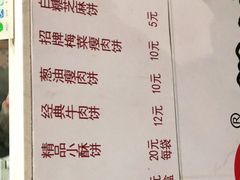 白糖芝麻饼 5元
招牌梅菜瘦肉饼 10元
葱油瘦肉饼 10元
经典牛肉饼 12元
精品小酥饼 20元 每袋
盒